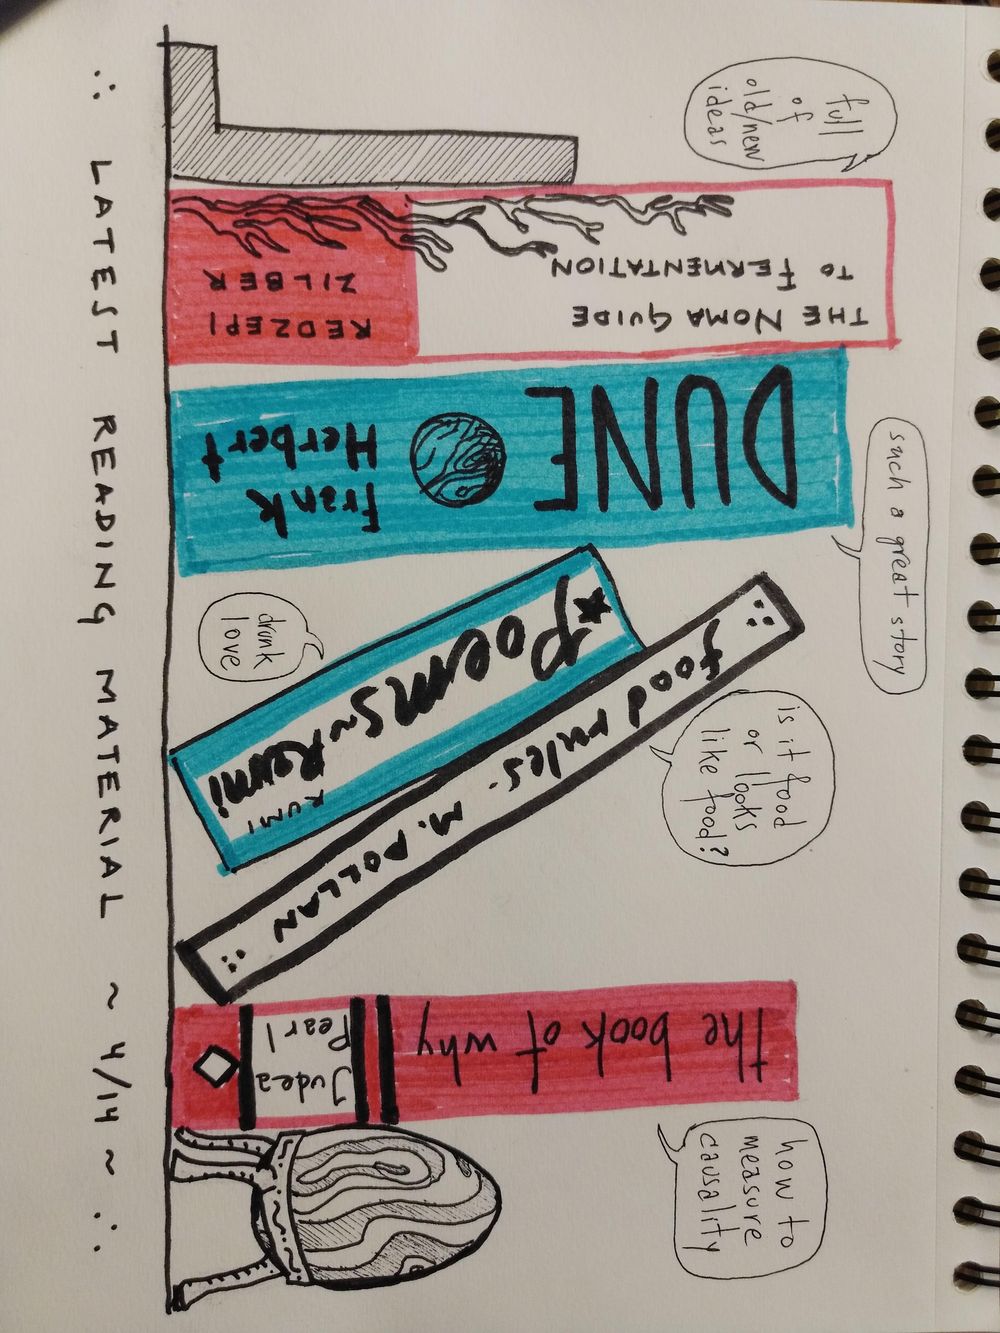 full
of
old/new
ideas
THE NOMA GUIDE
TO FERMENTATION
REDZEPI
ZILBER
such a great story
DUNE
Frank
Herbert
drunk
love
Poems ~ Rumi
RUMI
is it food
or looks
like food?
food rules. M. POLLAN
how to
measure
causality
the book of why
Judea
Pearl
∴ LATEST READING MATERIAL ~ 4/14 ~ ∴